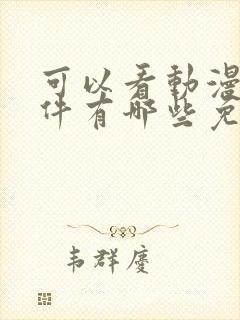 可以看動漫
件有哪些免
韦群慶